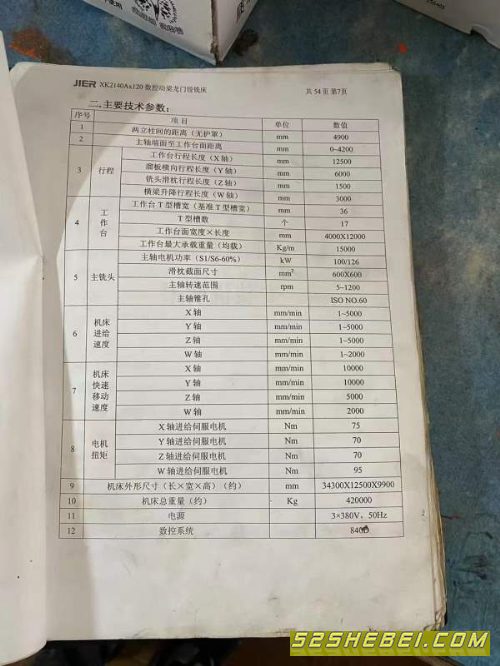 JIER XK2140Ax120 数控动梁龙门镗铣床 共 54 页 第7页
二.主要技术参数：
序号 项目 单位 数值
1 两立柱间的距离（无护罩） mm 4900
2 主轴端面至工作台面距离 mm 0~4200
3 行程 工作台行程长度（X 轴） mm 12500
溜板横向行程长度（Y 轴） mm 6000
铣头滑枕行程长度（Z 轴） mm 1500
横梁升降行程长度（W 轴） mm 3000
4 工作台 工作台 T 型槽宽（基准 T 型槽宽） mm 36
T 型槽数 个 17
工作台面宽度×长度 mm 4000X12000
工作台最大承载重量（均载） Kg/m 15000
5 主铣头 主轴电机功率（S1/S6-60%） kW 100/126
滑枕截面尺寸 mm² 600X600
主轴转速范围 rpm 5~1200
主轴锥孔 ISO NO.60
6 机床进给速度 X 轴 mm/min 1~5000
Y 轴 mm/min 1~5000
Z 轴 mm/min 1~5000
W 轴 mm/min 1~2000
7 机床快速移动速度 X 轴 mm/min 10000
Y 轴 mm/min 10000
Z 轴 mm/min 5000
W 轴 mm/min 2000
8 电机扭矩 X 轴进给伺服电机 Nm 75
Y 轴进给伺服电机 Nm 70
Z 轴进给伺服电机 Nm 70
W 轴进给伺服电机 Nm 95
9 机床外形尺寸（长×宽×高）（约） mm 34300X12500X9900
10 机床总重量（约） Kg 420000
11 电源 3×380V，50Hz
12 数控系统 840D
52SHEBEI.COM